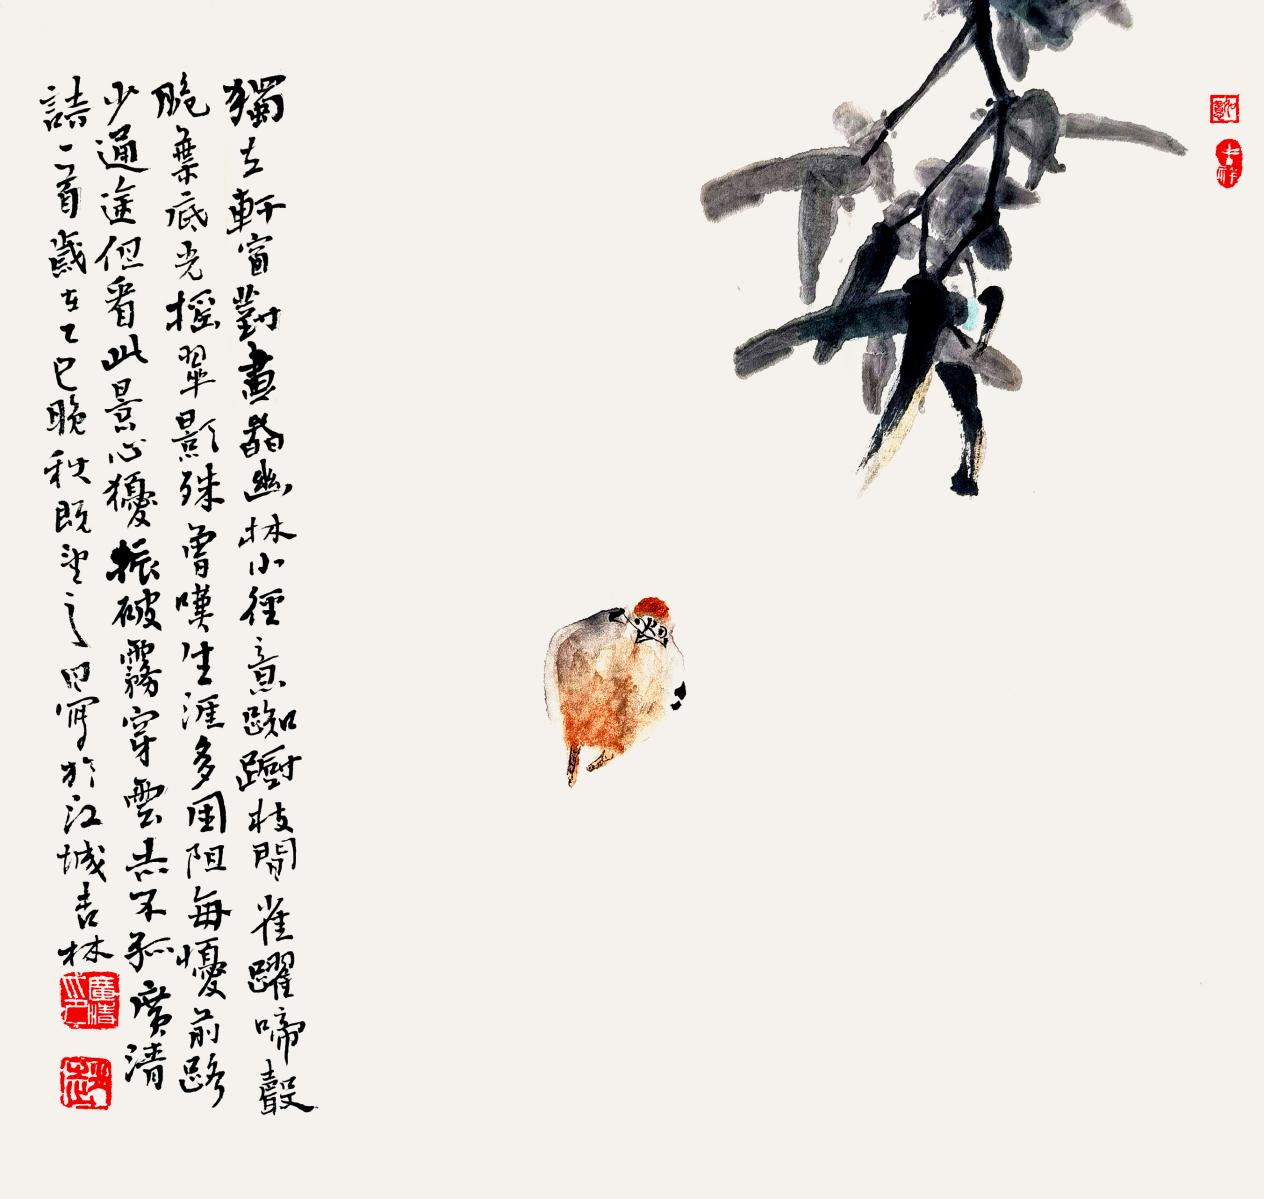 獨立軒窗對畫圖幽林小徑意踟躕枝間雀躍啼聲
脆葉底光搖翠影殊曾嘆生涯多困阻每憂前路
少通途但看此景心猶振破霧穿雲志不孤廣清
詩一首歲在乙巳晚秋既望之日寫於江城吉林